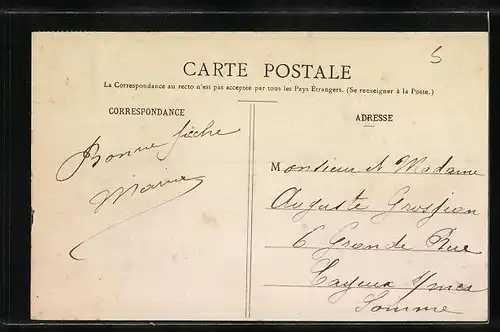 5
CARTE POSTALE
La Correspondance au recto n'est pas acceptée par tous les Pays Étrangers. (Se renseigner à la Poste.)
CORRESPONDANCE
Bonne pêche
ADRESSE
Monsieur et Madame
Auguste Grosjian
6 Grande Rue
Cayeux
Somme